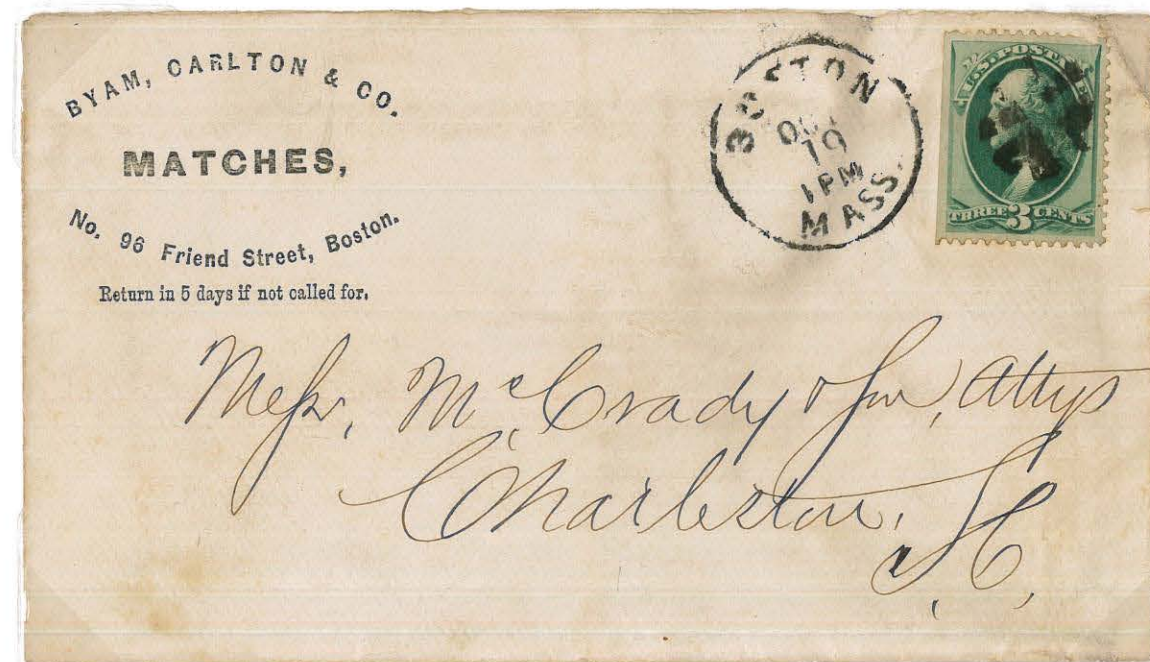 BYAM, CARLTON & CO.
MATCHES,
No. 96 Friend Street, Boston.
Return in 5 days if not called for.
BOSTON
OCT
19
1 PM
MASS.
U.S. POSTAGE
THREE 3 CENTS
Messr, McCrady & Son, Attys
Charleston,
S.C.